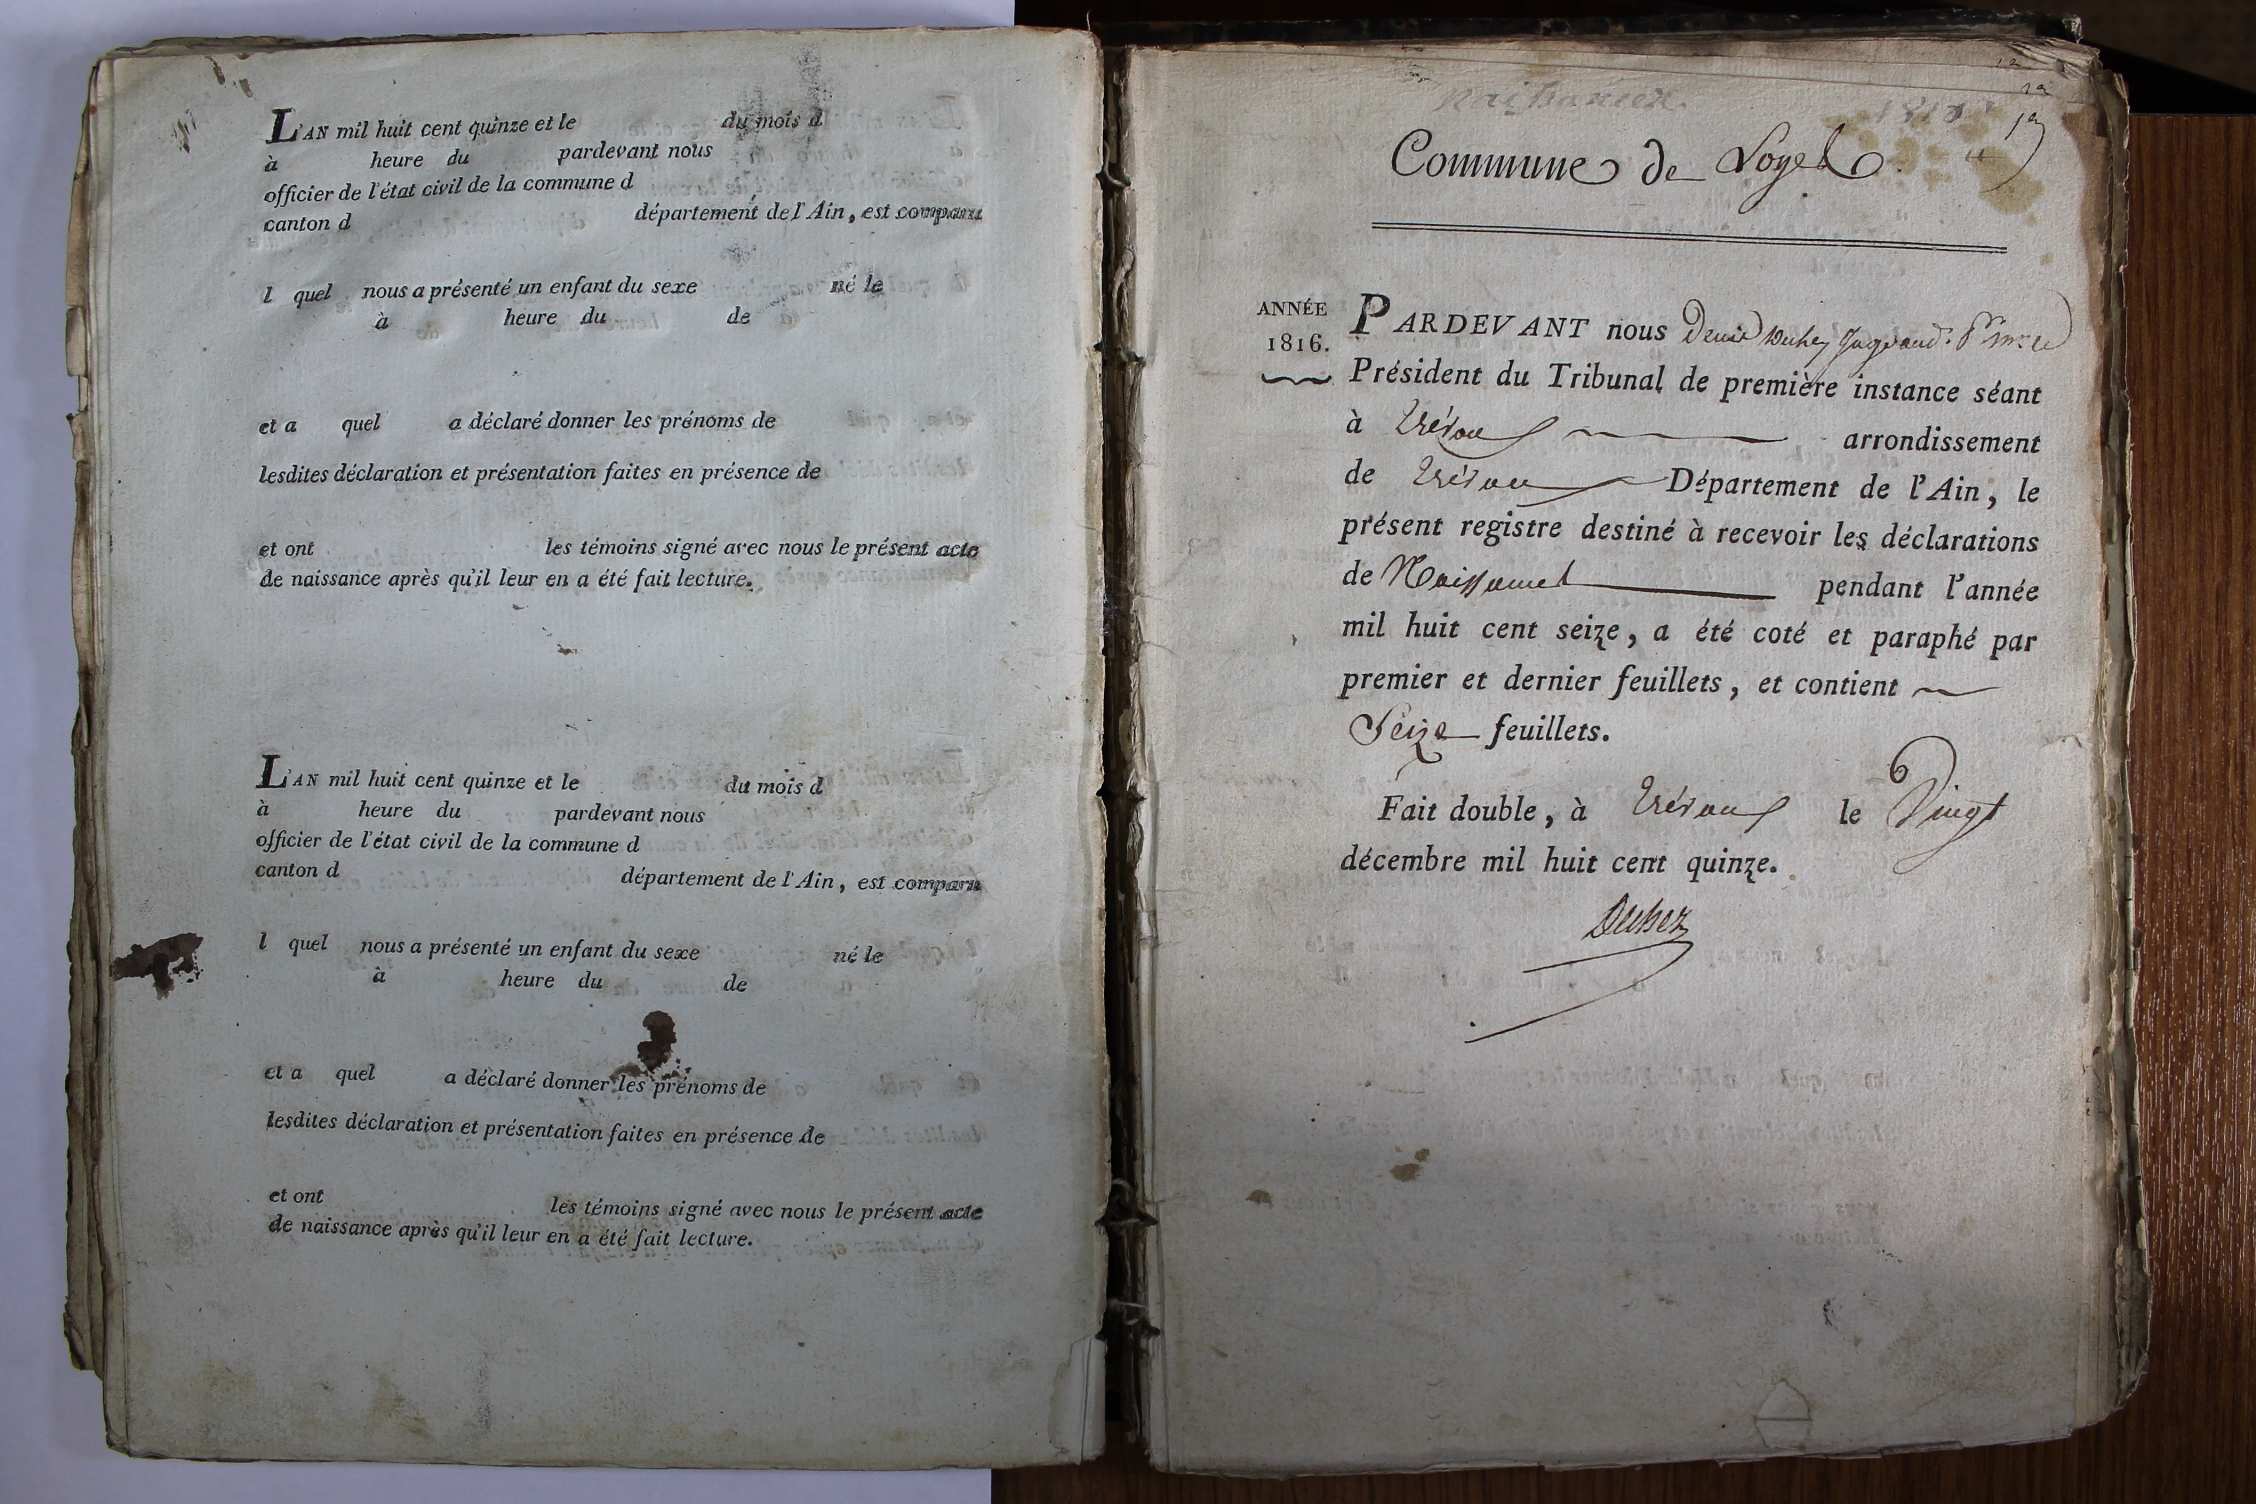 L'AN mil huit cent quinze et le du mois d
à heure du pardevant nous
officier de l'état civil de la commune d
canton d département de l'Ain, est comparu
l quel nous a présenté un enfant du sexe né le
à heure du de
et a quel a déclaré donner les prénoms de
lesdites déclaration et présentation faites en présence de
et ont les témoins signé avec nous le présent acte
de naissance après qu'il leur en a été fait lecture.
L'AN mil huit cent quinze et le du mois d
à heure du pardevant nous
officier de l'état civil de la commune d
canton d département de l'Ain, est comparu
l quel nous a présenté un enfant du sexe né le
à heure du de
et a quel a déclaré donner les prénoms de
lesdites déclaration et présentation faites en présence de
et ont les témoins signé avec nous le présent acte
de naissance après qu'il leur en a été fait lecture.
Commune de Loyes
ANNÉE
1816.
PARDEVANT nous Denis Duhez
Président du Tribunal de première instance séant
à Trévoux arrondissement
de Trévoux Département de l'Ain, le
présent registre destiné à recevoir les déclarations
de Naissances pendant l'année
mil huit cent seize, a été coté et paraphé par
premier et dernier feuillets, et contient
Seize feuillets.
Fait double, à Trévoux le Vingt
décembre mil huit cent quinze.
Duhez